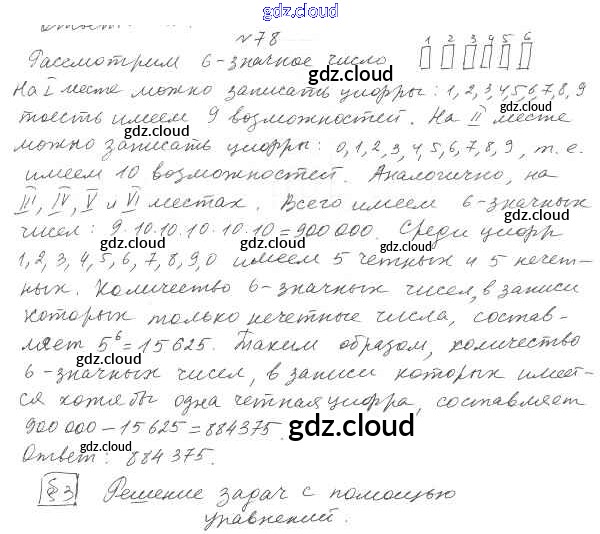 gdz.cloud
№78
Рассмотрим 6-значное число 1 2 3 4 5 6
На I месте можно записать цифры: 1,2,3,4,5,6,7,8,9
тоесть имеем 9 возможностей. На II месте
можно записать цифры: 0,1,2,3,4,5,6,7,8,9, т.е.
имеем 10 возможностей. Аналогично, на
III, IV, V и VI местах. Всего имеем 6-значных
чисел: 9·10·10·10·10·10=900 000. Среди цифр
1,2,3,4,5,6,7,8,9,0 имеем 5 четных и 5 нечет-
ных. Количество 6-значных чисел, в записи
которых только нечетные числа, состав-
ляет 5⁶=15 625. Таким образом, количество
6-значных чисел, в записи которых имеет-
ся хотя бы одна четная цифра, составляет
900 000-15 625=884 375.
Ответ: 884 375.
§3 Решение задач с помощью
уравнений.
gdz.cloud
gdz.cloud
gdz.cloud
gdz.cloud
gdz.cloud
gdz.cloud
gdz.cloud
gdz.cloud
gdz.cloud
gdz.cloud
gdz.cloud
gdz.cloud
gdz.cloud